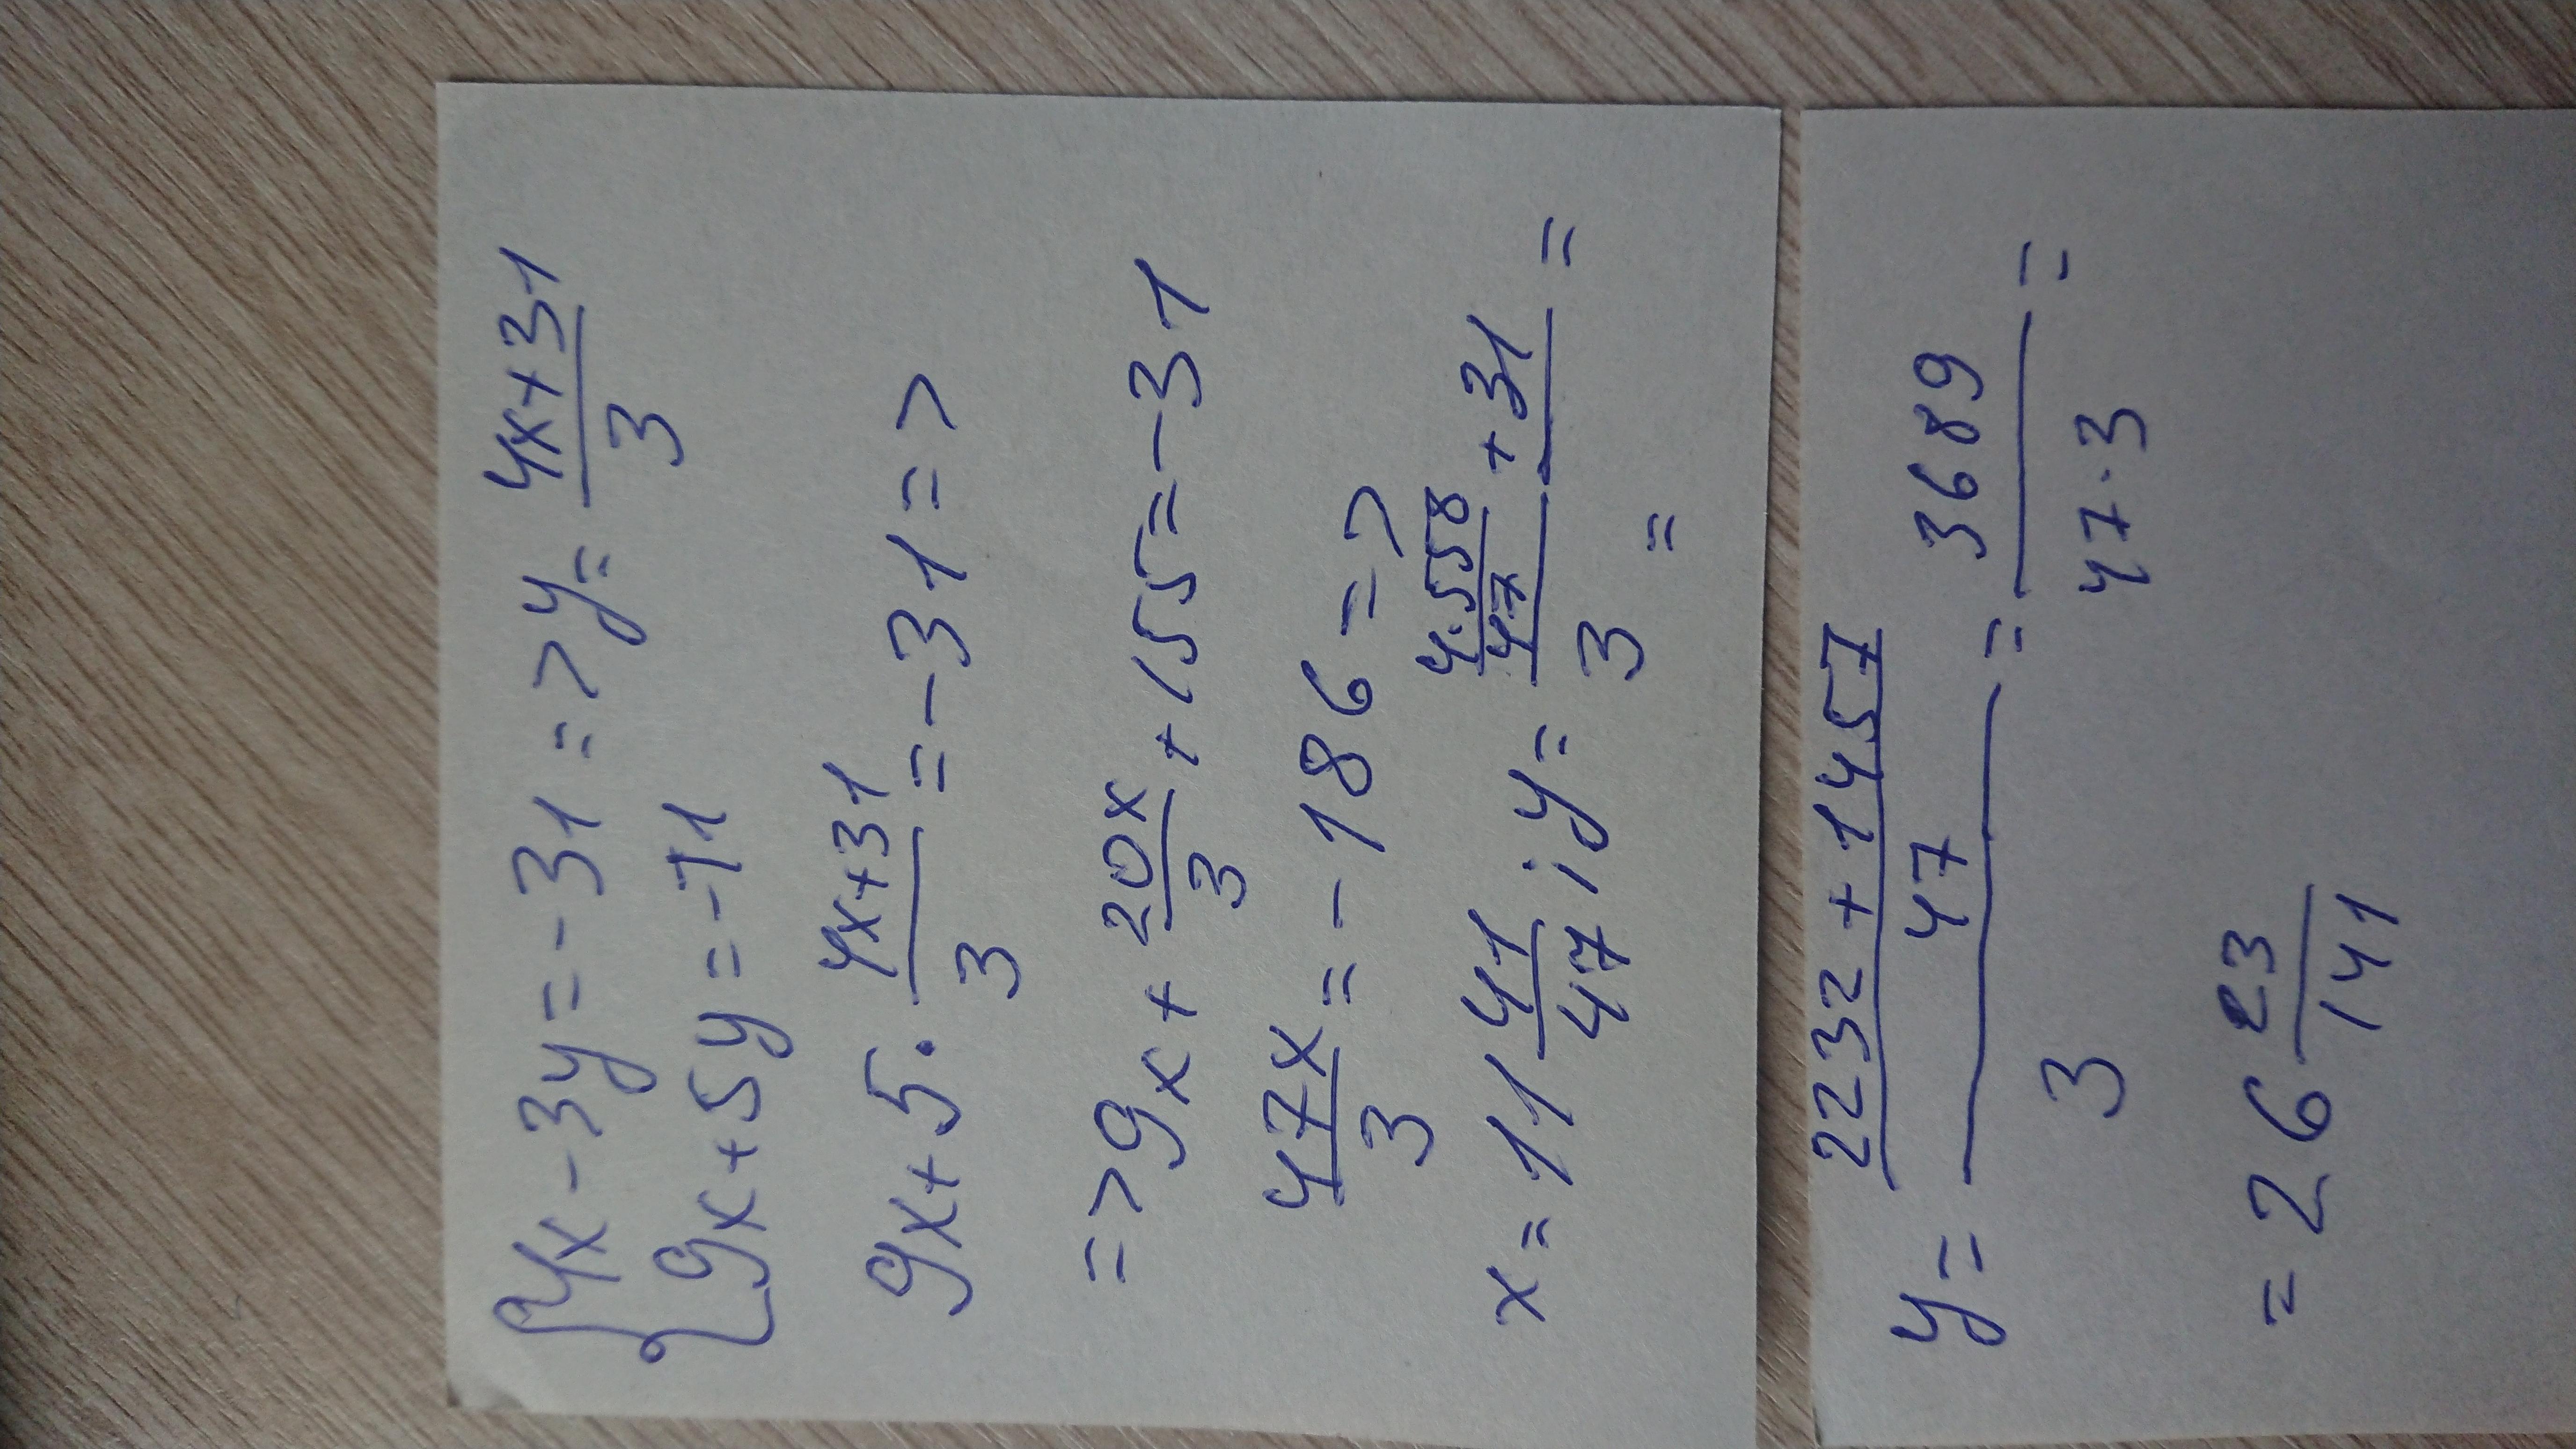 {4x-3y=-31=>y=(4x+31)/3
{9x+5y=-11
9x+5·(4x+31)/3=-31=>
=>9x+20x/3+155=-31
47x/3=-186=>
x=11 41/47; y=(4·558/47+31)/3=
=
y=((2232+1457)/47)/3=3689/(47·3)=
=26 23/141